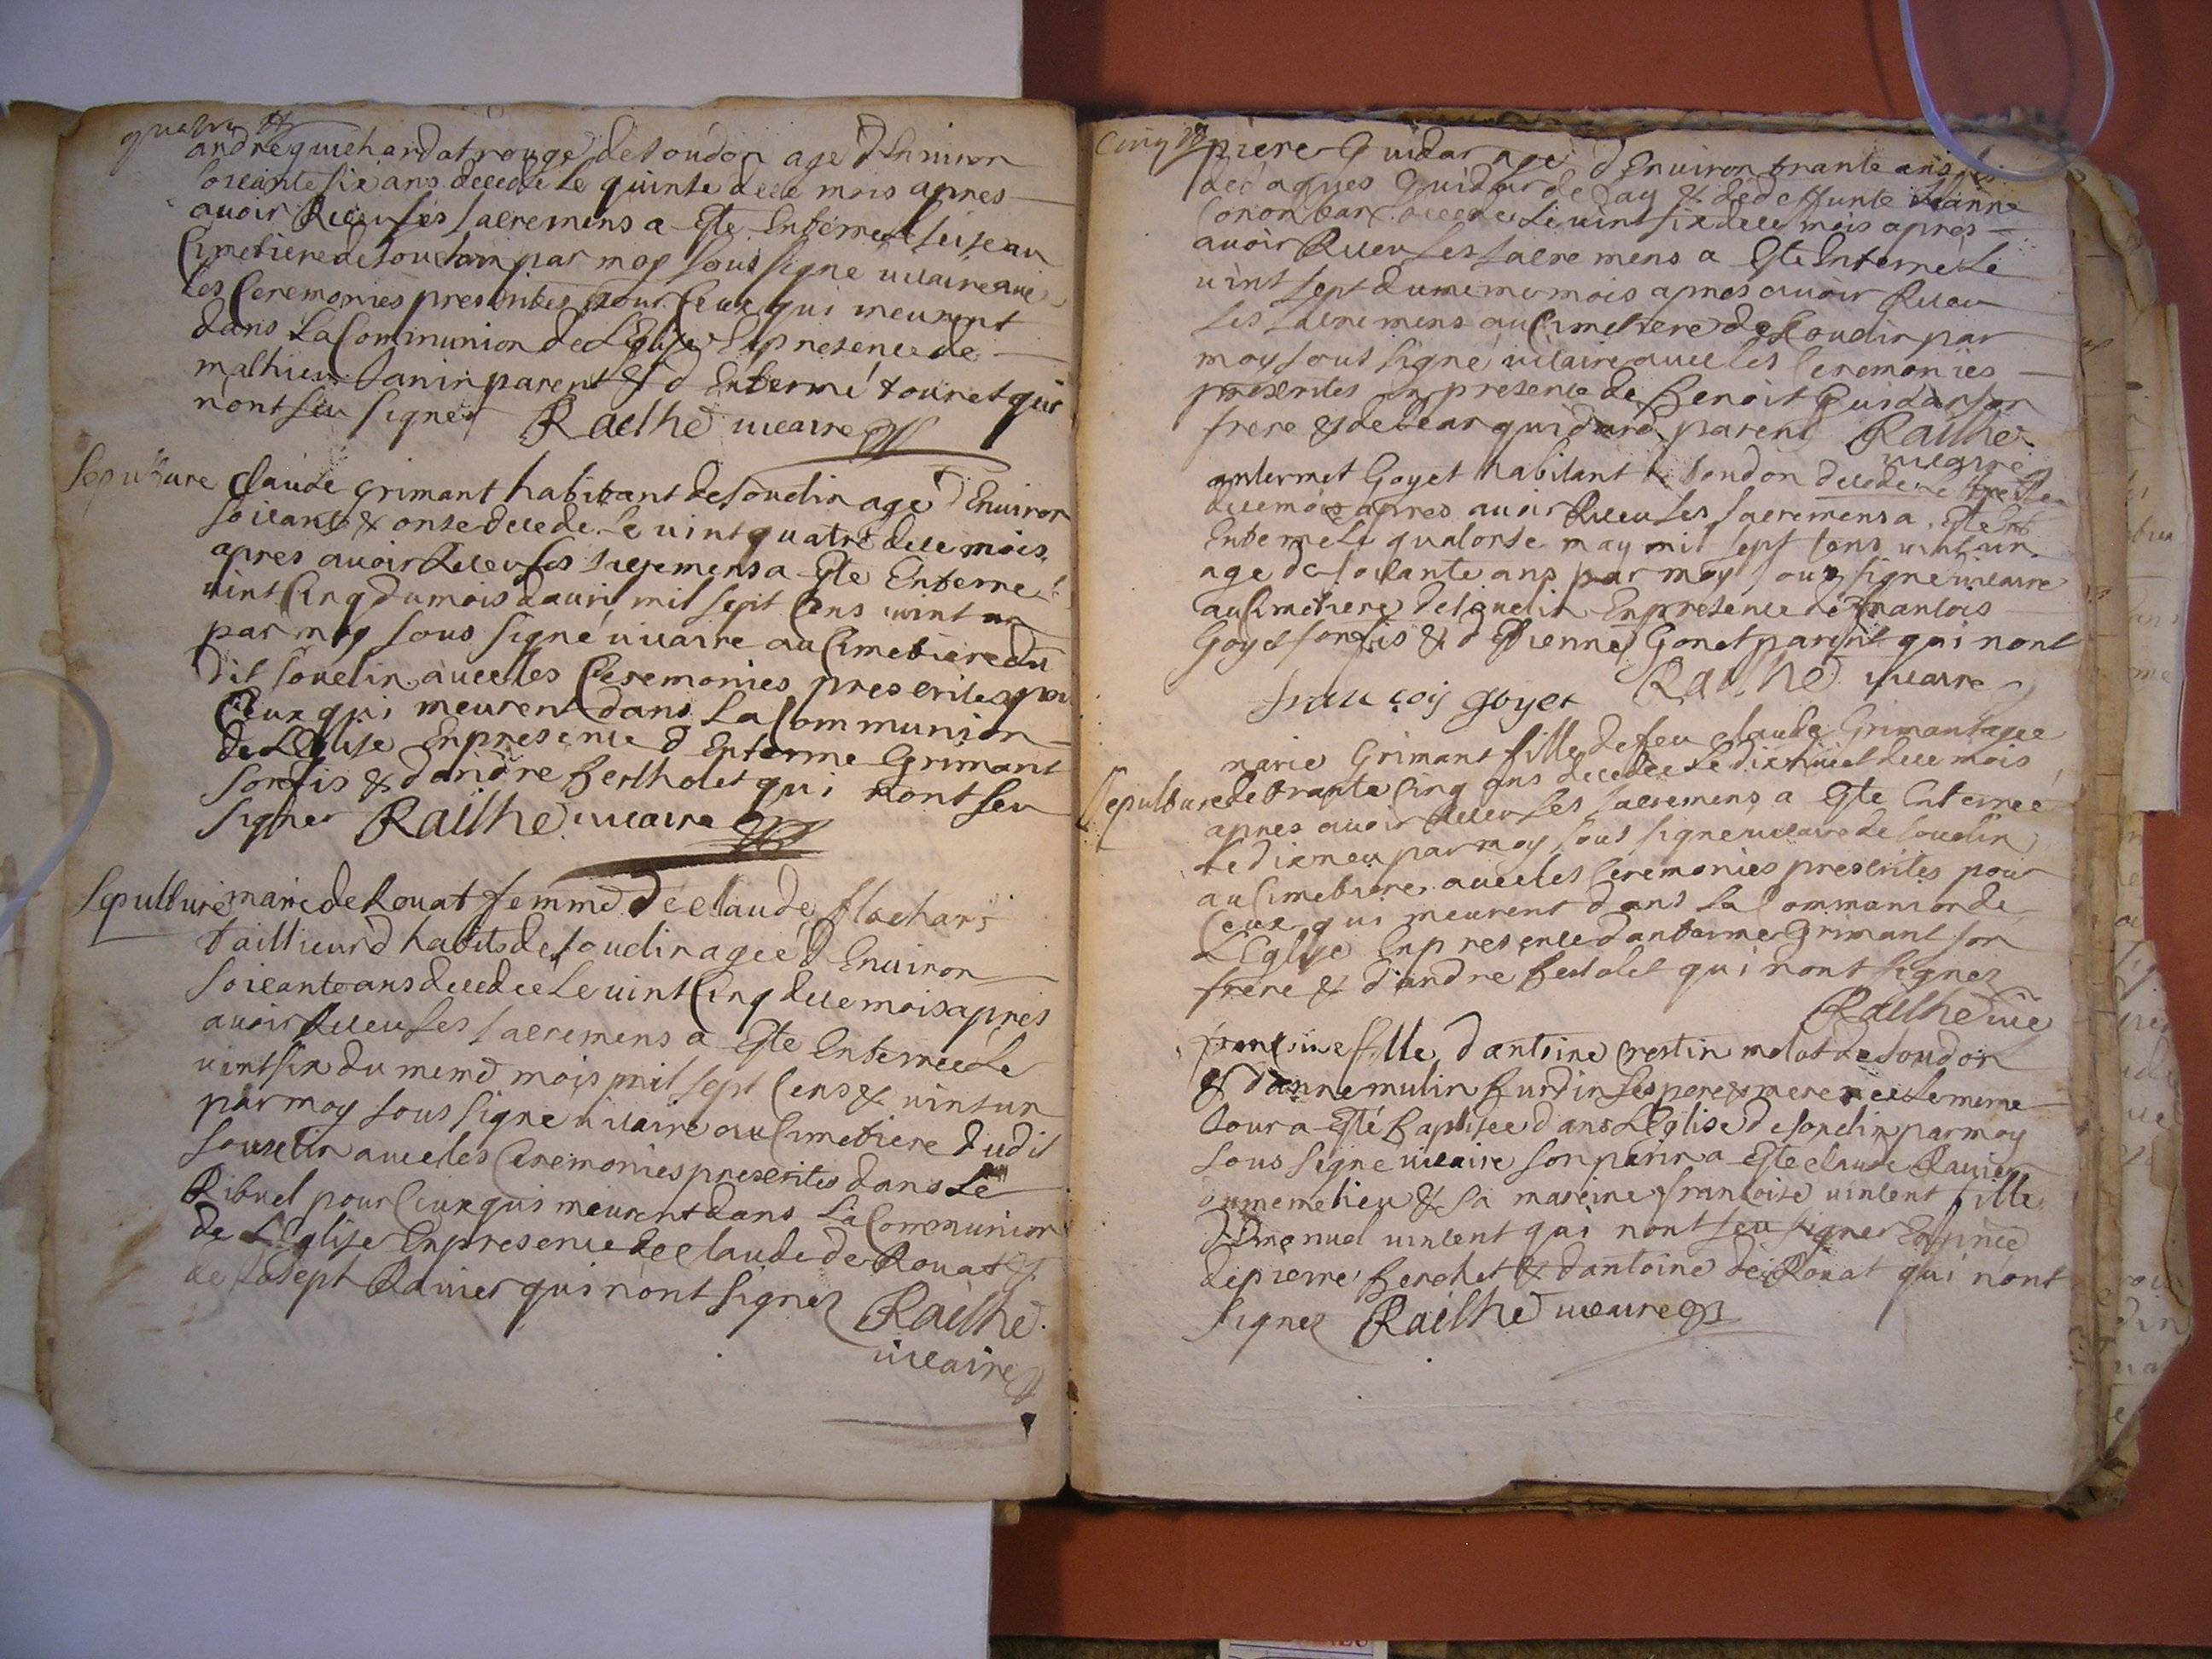 quatre
andre guichard at rouge de Soudon age d Environ
soixante six ans decede Le quinse de ce mois apres
avoir Receu Les sacremens a Este Enterré Le seise au
Cimetiere de souclin par moy sous signé vicaire avec
Les Ceremonies prescrites pour Ceux qui meurent
dans La Communion de L Eglise En presence de
mathieu Janin parent & d Entermé touret qui
nont seu signer Railhe vicaire
Sepulture Claude grimant habitant de souclin age d Environ
soixante & onse decede Le vint quatre de ce mois
apres avoir Receu Les sacremens a Este Enterré
vint Cinq du mois d avril mil sept Cens vint un
par moy sous signé vicaire au Cimetiere du
dit souclin avec les Ceremonies prescrites pour
Ceux qui meurent dans La Communion
de L Eglise En presence d Enterme Grimant
son fis & d andre Bertholet qui nont seu
signer Railhe vicaire
Sepulture marie de Rouat femme de claude flachar
taillieur d habits de souclin agee d Environ
soixante ans decedee Le vint Cinq de ce mois apres
avoir Receu Les sacremens a Este Enterrée Le
vint six du meme mois mil sept Cens & vint un
par moy sous signe vicaire au Cimetiere dudit
souclin avec les Ceremonies prescrites dans Le
Rituel pour Ceux qui meurent dans La Communion
de L Eglise En presence de claude de Rouat &
de Josept Ravier qui nont signer Railhe
vicaire
Cinq
piere Guidar age d Environ trante ans fis
de Jaques Guidar de Lay & de deffunte Jeanne
decede Le vint six de ce mois apres
avoir Receu Les sacremens a Este Enterré Le
vint sept du meme mois apres avoir Receu
Les sacremens au Cimetiere de souclin par
moy sous signé vicaire avec les Ceremonies
prescrites En presence de Benoit Guidar son
frere & de Jean guidard parent Railhe
vicaire
antermet Goyet habitant de Soudon decede Le treise
de ce mois apres avoir Receu Les sacremens a Este Ent
Enterré Le quatorse may mil sept Cens vint un
age de soixante ans par moy sous signé vicaire
au Cimetiere de souclin En presence de francois
Goyet son fis & d Etienne Gonet parent qui nont
françois goyet Railhe vicaire
marie Grimant fille de feu claude Grimant agee
Sepulture de trante Cinq ans decedee Le dix huict de ce mois
apres avoir Receu Les sacremens a Este Enterrée
Le dix neu par moy sous signé vicaire de souclin
au Cimetiere avec les Ceremonies prescrites pour
Ceux qui meurent dans La Communion de
L Eglise En presence d anterme Grimant son
frere & d andre Bertolet qui nont signer
Railhe vic
francoise fille d antoine Crestin molat de Soudon
& d anne mulin Burdin ses pere & mere nee Le meme
Jour a Esté Baptisee dans L Eglise de souclin par moy
sous signe vicaire son parrin a Este claude Ravier
du meme lieu & sa mareine francoise vincent fille
d Emanuel vincent qui nont seu signer En pnce
de pierre Berchet & d antoine de Rouat qui nont
signer Railhe vicaire